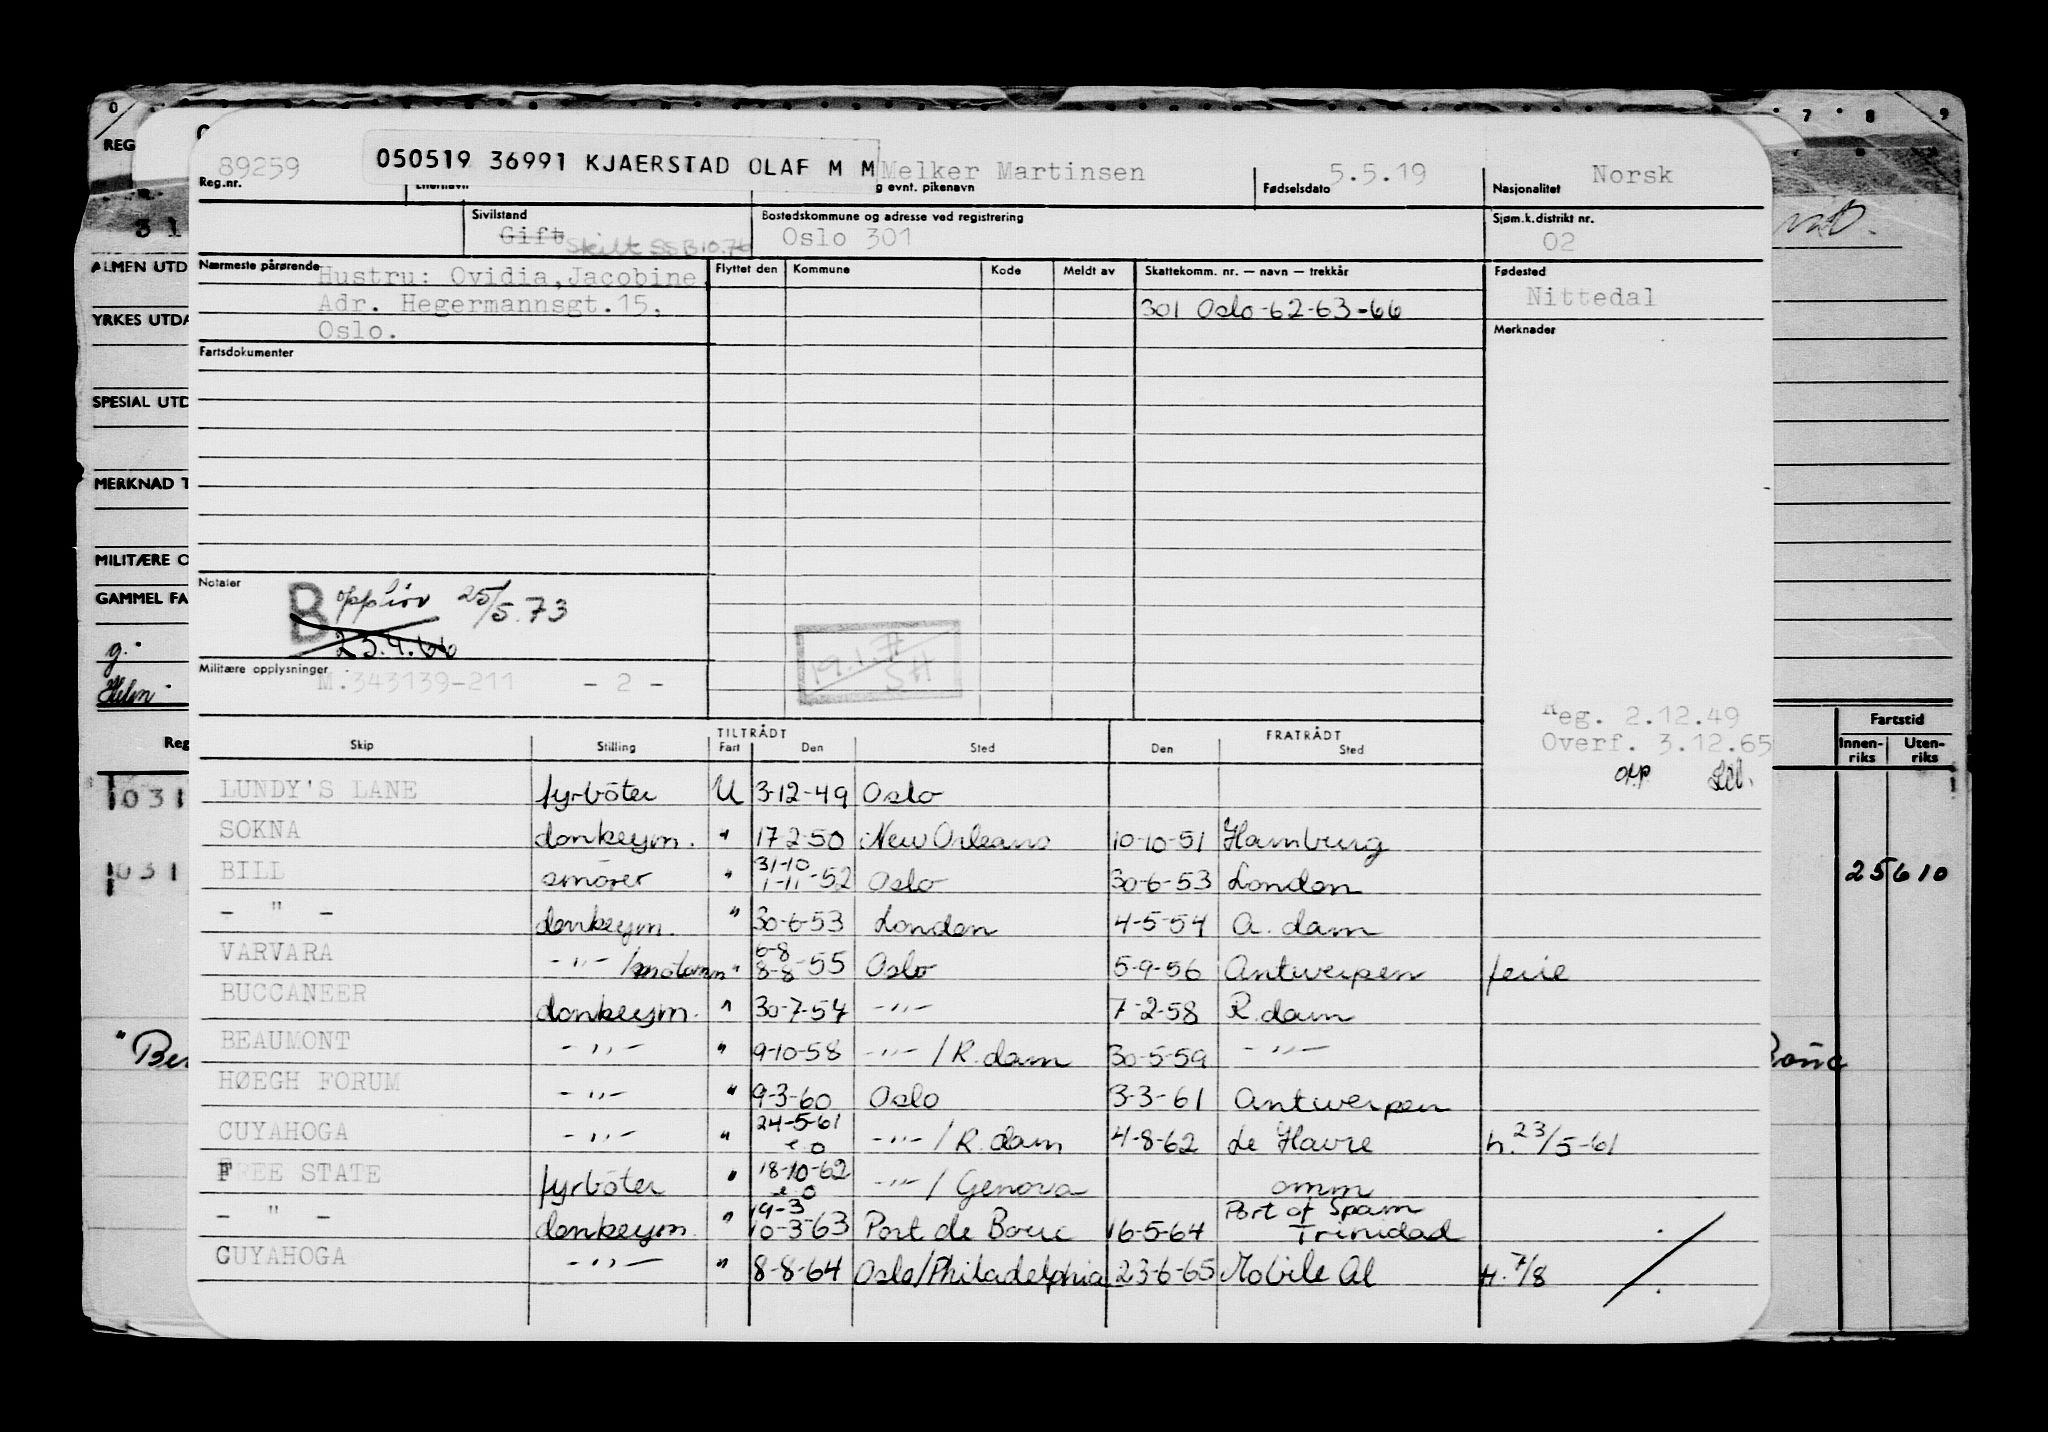 0 7 8 9
REG
89259 050519 36991 KJAERSTAD OLAF M M Melker Martinsen 5.5.19 Norsk
Reg.nr. g evnt. pikenavn Fødselsdato Nasjonalitet
31
Sivilstand Bostedskommune og adresse ved registrering Sjøm.k.distrikt nr.
Gift Skilt Oslo 301 02
ALMEN UTD
Nærmeste pårørende Flyttet den Kommune Kode Meldt av Skattekomm. nr. — navn — trekkår Fødested
Hustru: Ovidia,Jacobine,
Adr. Hegermannsgt.15, 301 Oslo-62-63-66 Nittedal
YRKES UTDA
Oslo. Merknader
Fartsdokumenter
SPESIAL UTD
MERKNAD T
MILITÆRE O
Notater
GAMMEL FA
B opphør 25/5.73
23.4.66
g.
Militære opplysninger M.343139-211 - 2 -
SH
Helm
Reg. 2.12.49
Overf. 3.12.65
opp
Fartstid
Innen-riks Uten-riks
Reg
TILTRÅDT FRATRÅDT
Skip Stilling Fart Den Sted Den Sted
LUNDY'S LANE fyrböter U 3-12-49 Oslo
031
SOKNA donkeym. " 17-2-50 New Orleans 10-10-51 Hamburg
BILL smörer " 31-10 1-11-52 Oslo 30-6-53 London
031 25 6 10
- " - donkeym. " 30-6-53 London 4-5-54 A. dam
VARVARA - " - /motorm " 6-8 8-8-55 Oslo 5-9-56 Antwerpen ferie
BUCCANEER donkeym. " 30-7-54 - " - 7-2-58 R.dam
BEAUMONT - " - " 9-10-58 - " - / R.dam 30-5-59 - " -
"Ber Bouc
HØEGH FORUM - " - " 9-3-60 Oslo 3-3-61 Antwerpen
CUYAHOGA - " - " 24-5-61 e.o - " - / R.dam 4-8-62 Le Havre h. 23/5-61
FREE STATE fyrböter " 18-10-62 e.o - " - / Genova omm
- " - donkeym. " 19-3 10-3-63 Port de Bouc 16-5-64 Port of Spain Trinidad
CUYAHOGA - " - " 8-8-64 Oslo/Philadelphia 23-6-65 Mobile Al H. 7/8